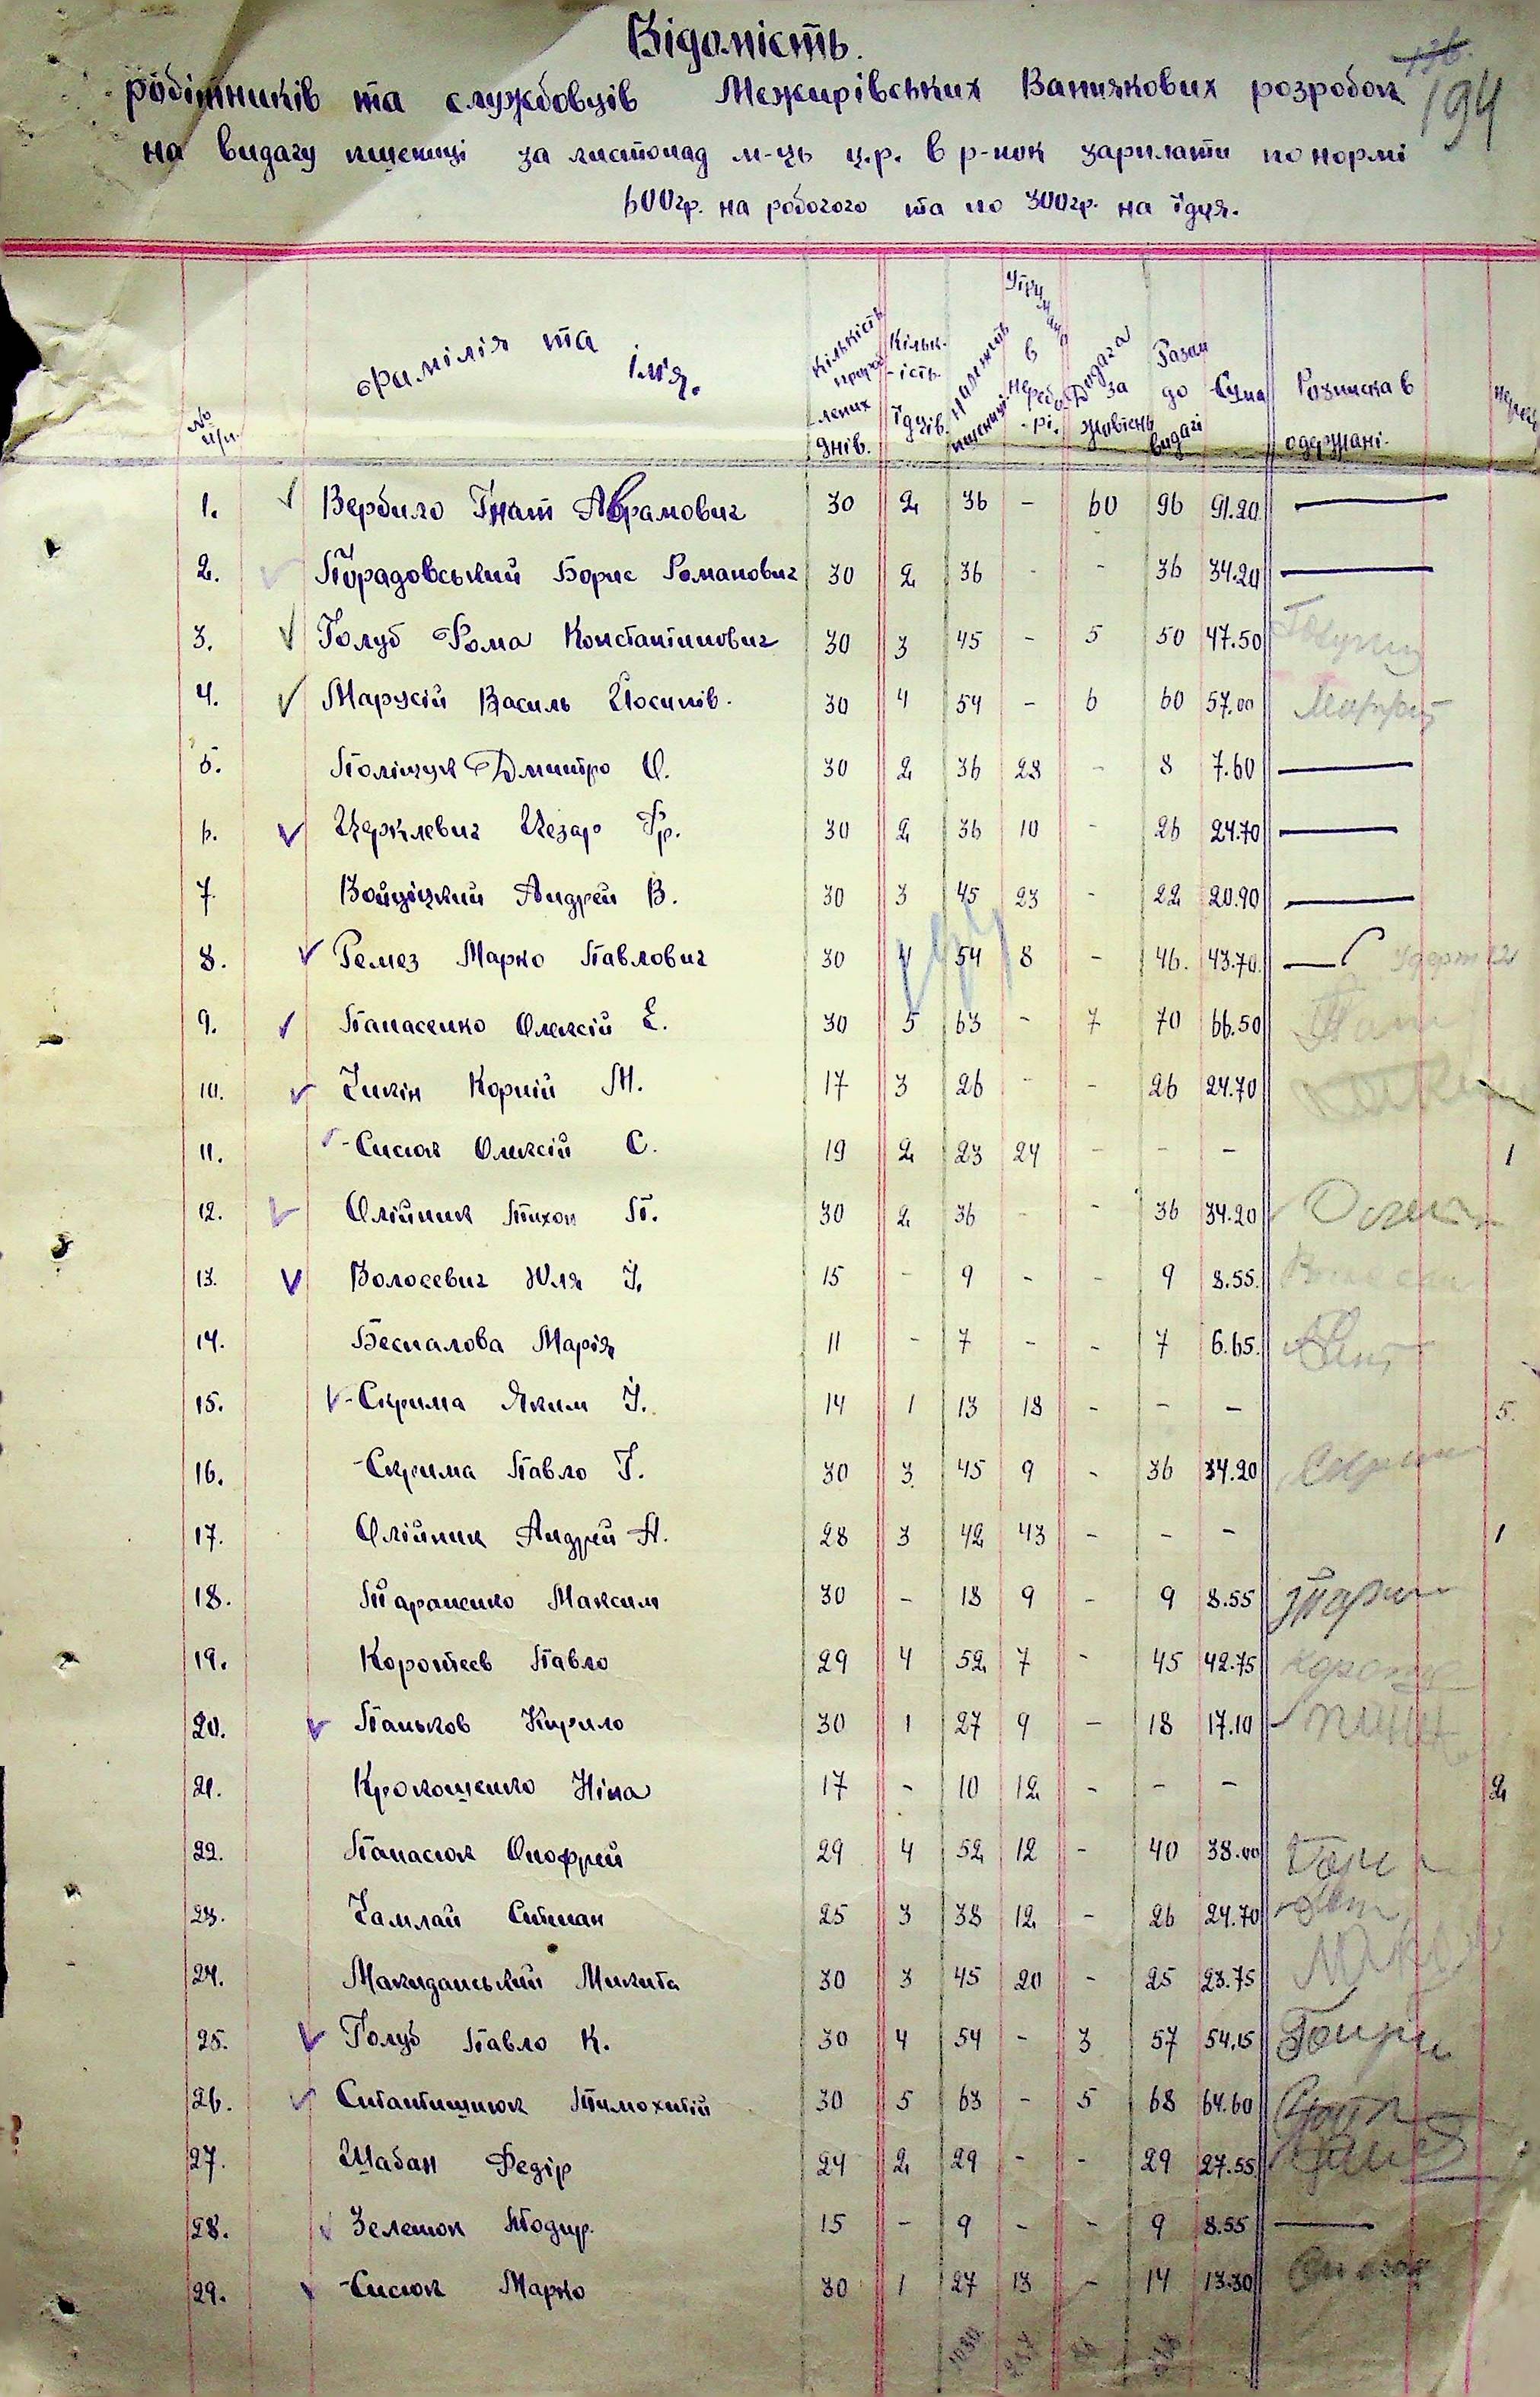 Відомість.
робітників та службовців Межирівських Вапнякових розробок
136.
194
на видачу пшениці за листопад м-ць ц.р. в р-нок зарплати по нормі
600гр. на робочого та по 300гр. на їдця.
№ п/п. Фамілія та ім'я. Кількість пророблених днів. Кільк-ість їдців. Належить пшениці. Утримано в переборі. Видача за жовтень Разом до видачі Сума Розписка в одержані.
1. Вербило Гнат Абрамович 30 2 36 - 60 96 91.20
2. Порадовський Борис Романович 30 2 36 - - 36 34.20
3. Голуб Фома Константинович 30 3 45 - 5 50 47.50
4. Марусій Василь Йосипів. 30 4 54 - 6 60 57.00
5. Поліщук Дмитро О. 30 2 36 28 - 8 7.60
6. Церклевич Цезар Фр. 30 2 36 10 - 26 24.70
7. Войціцкий Андрей В. 30 3 45 23 - 22 20.90
8. Ремез Марко Павлович 30 4 54 8 - 46. 43.70
9. Панасенко Олексій Е. 30 5 63 - 7 70 66.50
10. Чикін Корній М. 17 3 26 - - 26 24.70
11. Сисюк Олексій С. 19 2 23 24 - - - 1
12. Олійник Тихон П. 30 2 36 - - 36 34.20
13. Волосевич Юля І. 15 - 9 - - 9 8.55.
14. Беспалова Марія 11 - 7 - - 7 6.65.
15. Скрима Яким І. 14 1 13 18 - - - 5.
16. Скрима Павло І. 30 3 45 9 - 36 34.20
17. Олійник Андрей А. 28 3 42 43 - - - 1
18. Тараненко Максим 30 - 18 9 - 9 8.55
19. Коротеєв Павло 29 4 52 7 - 45 42.75
20. Паньков Кирило 30 1 27 9 - 18 17.10
21. Крокошенко Ніна 17 - 10 12 - - - 2
22. Панасюк Онофрей 29 4 52 12 - 40 38.00
23. Чамлай Степан 25 3 38 12 - 26 24.70
24. Макиданський Микита 30 3 45 20 - 25 23.75
25. Голуб Павло К. 30 4 54 - 3 57 54.15
26. Стантищнюк Тимохтій 30 5 63 - 5 68 64.60
27. Шабан Федір 24 2 29 - - 29 27.55
28. Зелешок Тодир. 15 - 9 - - 9 8.55
29. Сисюк Марко 30 1 27 13 - 14 13.30